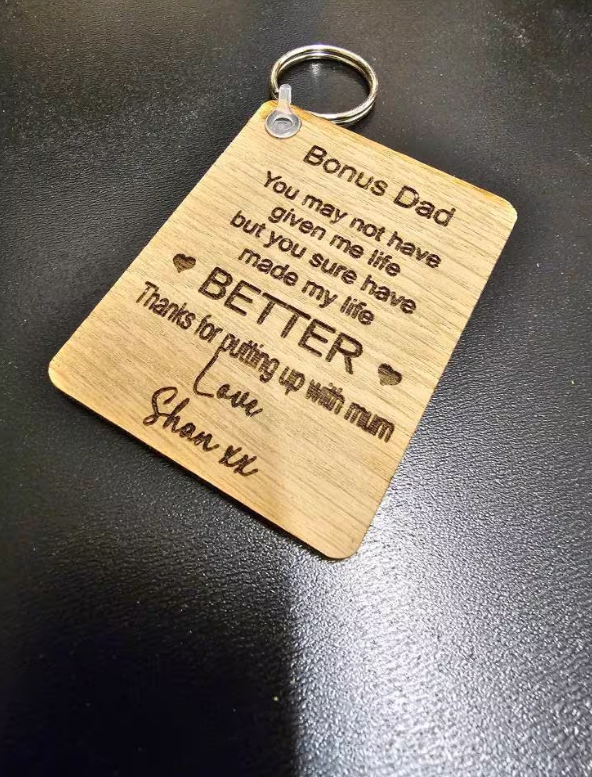 Bonus Dad
You may not have
given me life
but you sure have
made my life
♥ BETTER ♥
Thanks for putting up with mum
Love
Shan xx